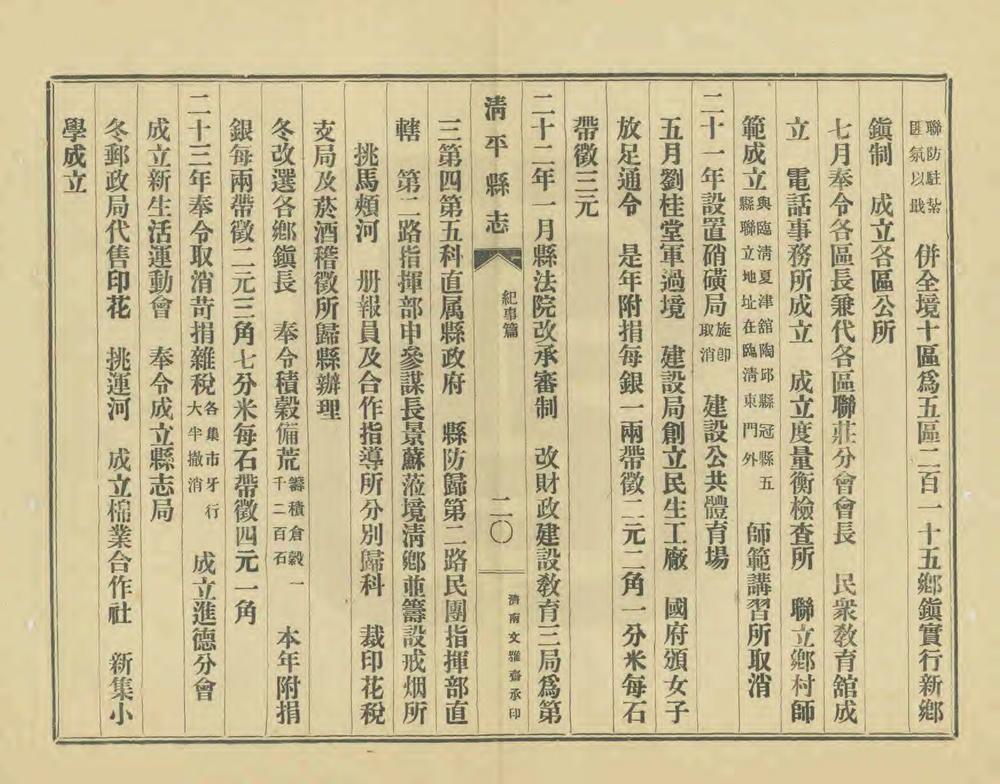 聯防駐紮匪氛以戢　併全境十區為五區二百一十五鄉鎮實行新鄉
鎮制　成立各區公所
七月奉令各區長兼代各區聯莊分會會長　民衆敎育舘成
立　電話事務所成立　成立度量衡檢查所　聯立鄉村師
範成立與臨清夏津舘陶邱縣冠縣五縣聯立地址在臨清東門外　師範講習所取消
二十一年設置硝磺局旋卽取消　建設公共體育場
五月劉桂堂軍過境　建設局創立民生工廠　國府頒女子
放足通令　是年附捐每銀一兩帶徵二元二角一分米每石
帶徵三元
二十二年一月縣法院改承審制　改財政建設敎育三局爲第
清平縣志　紀事篇　二〇　濟南文雅齋承印
三第四第五科直属縣政府　縣防歸第二路民團指揮部直
轄　第二路指揮部申參謀長景蘇蒞境淸鄉並籌設戒烟所
挑馬頰河　册報員及合作指導所分別歸科　裁印花税
支局及菸酒稽徵所歸縣辦理
冬改選各鄉鎮長　奉令積穀備荒籌積倉穀一千二百石　本年附捐
銀每兩帶徵二元三角七分米每石帶徵四元一角
二十三年奉令取消苛捐雜稅各集市牙行大半撤消　成立進德分會
成立新生活運動會　奉令成立縣志局
冬郵政局代售印花　挑運河　成立棉業合作社　新集小
學成立